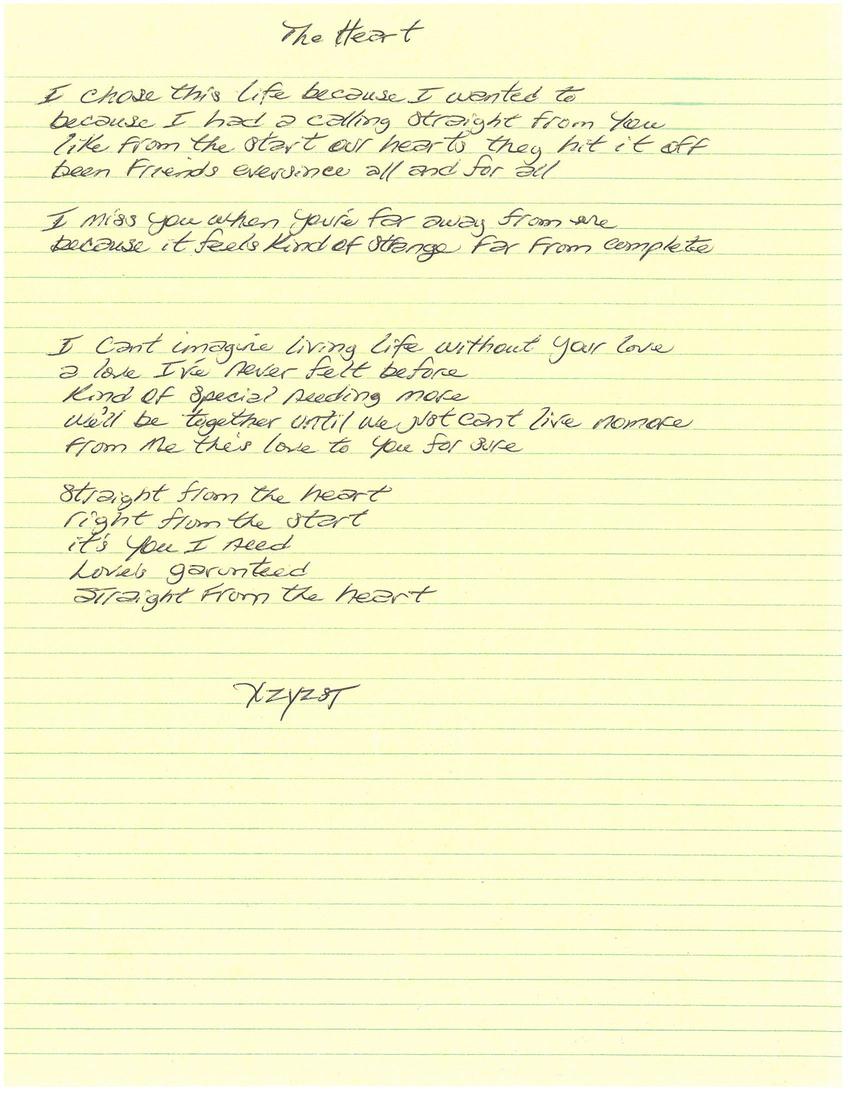 The Heart
I chose this life because I wanted to
because I had a calling straight from you
like from the start our hearts they hit it off
been Friends eversince all and for all
I miss you when you're far away from me
because it feels Kind of Strange Far From complete
I Cant imagine living life without your love
a love I've never felt before
Kind of Special needing more
we'll be together until we just cant live nomore
From Me the's love to you for sure
Straight from the heart
right from the start
it's you I need
Love's garunteed
Straight From the heart
XzyzsT